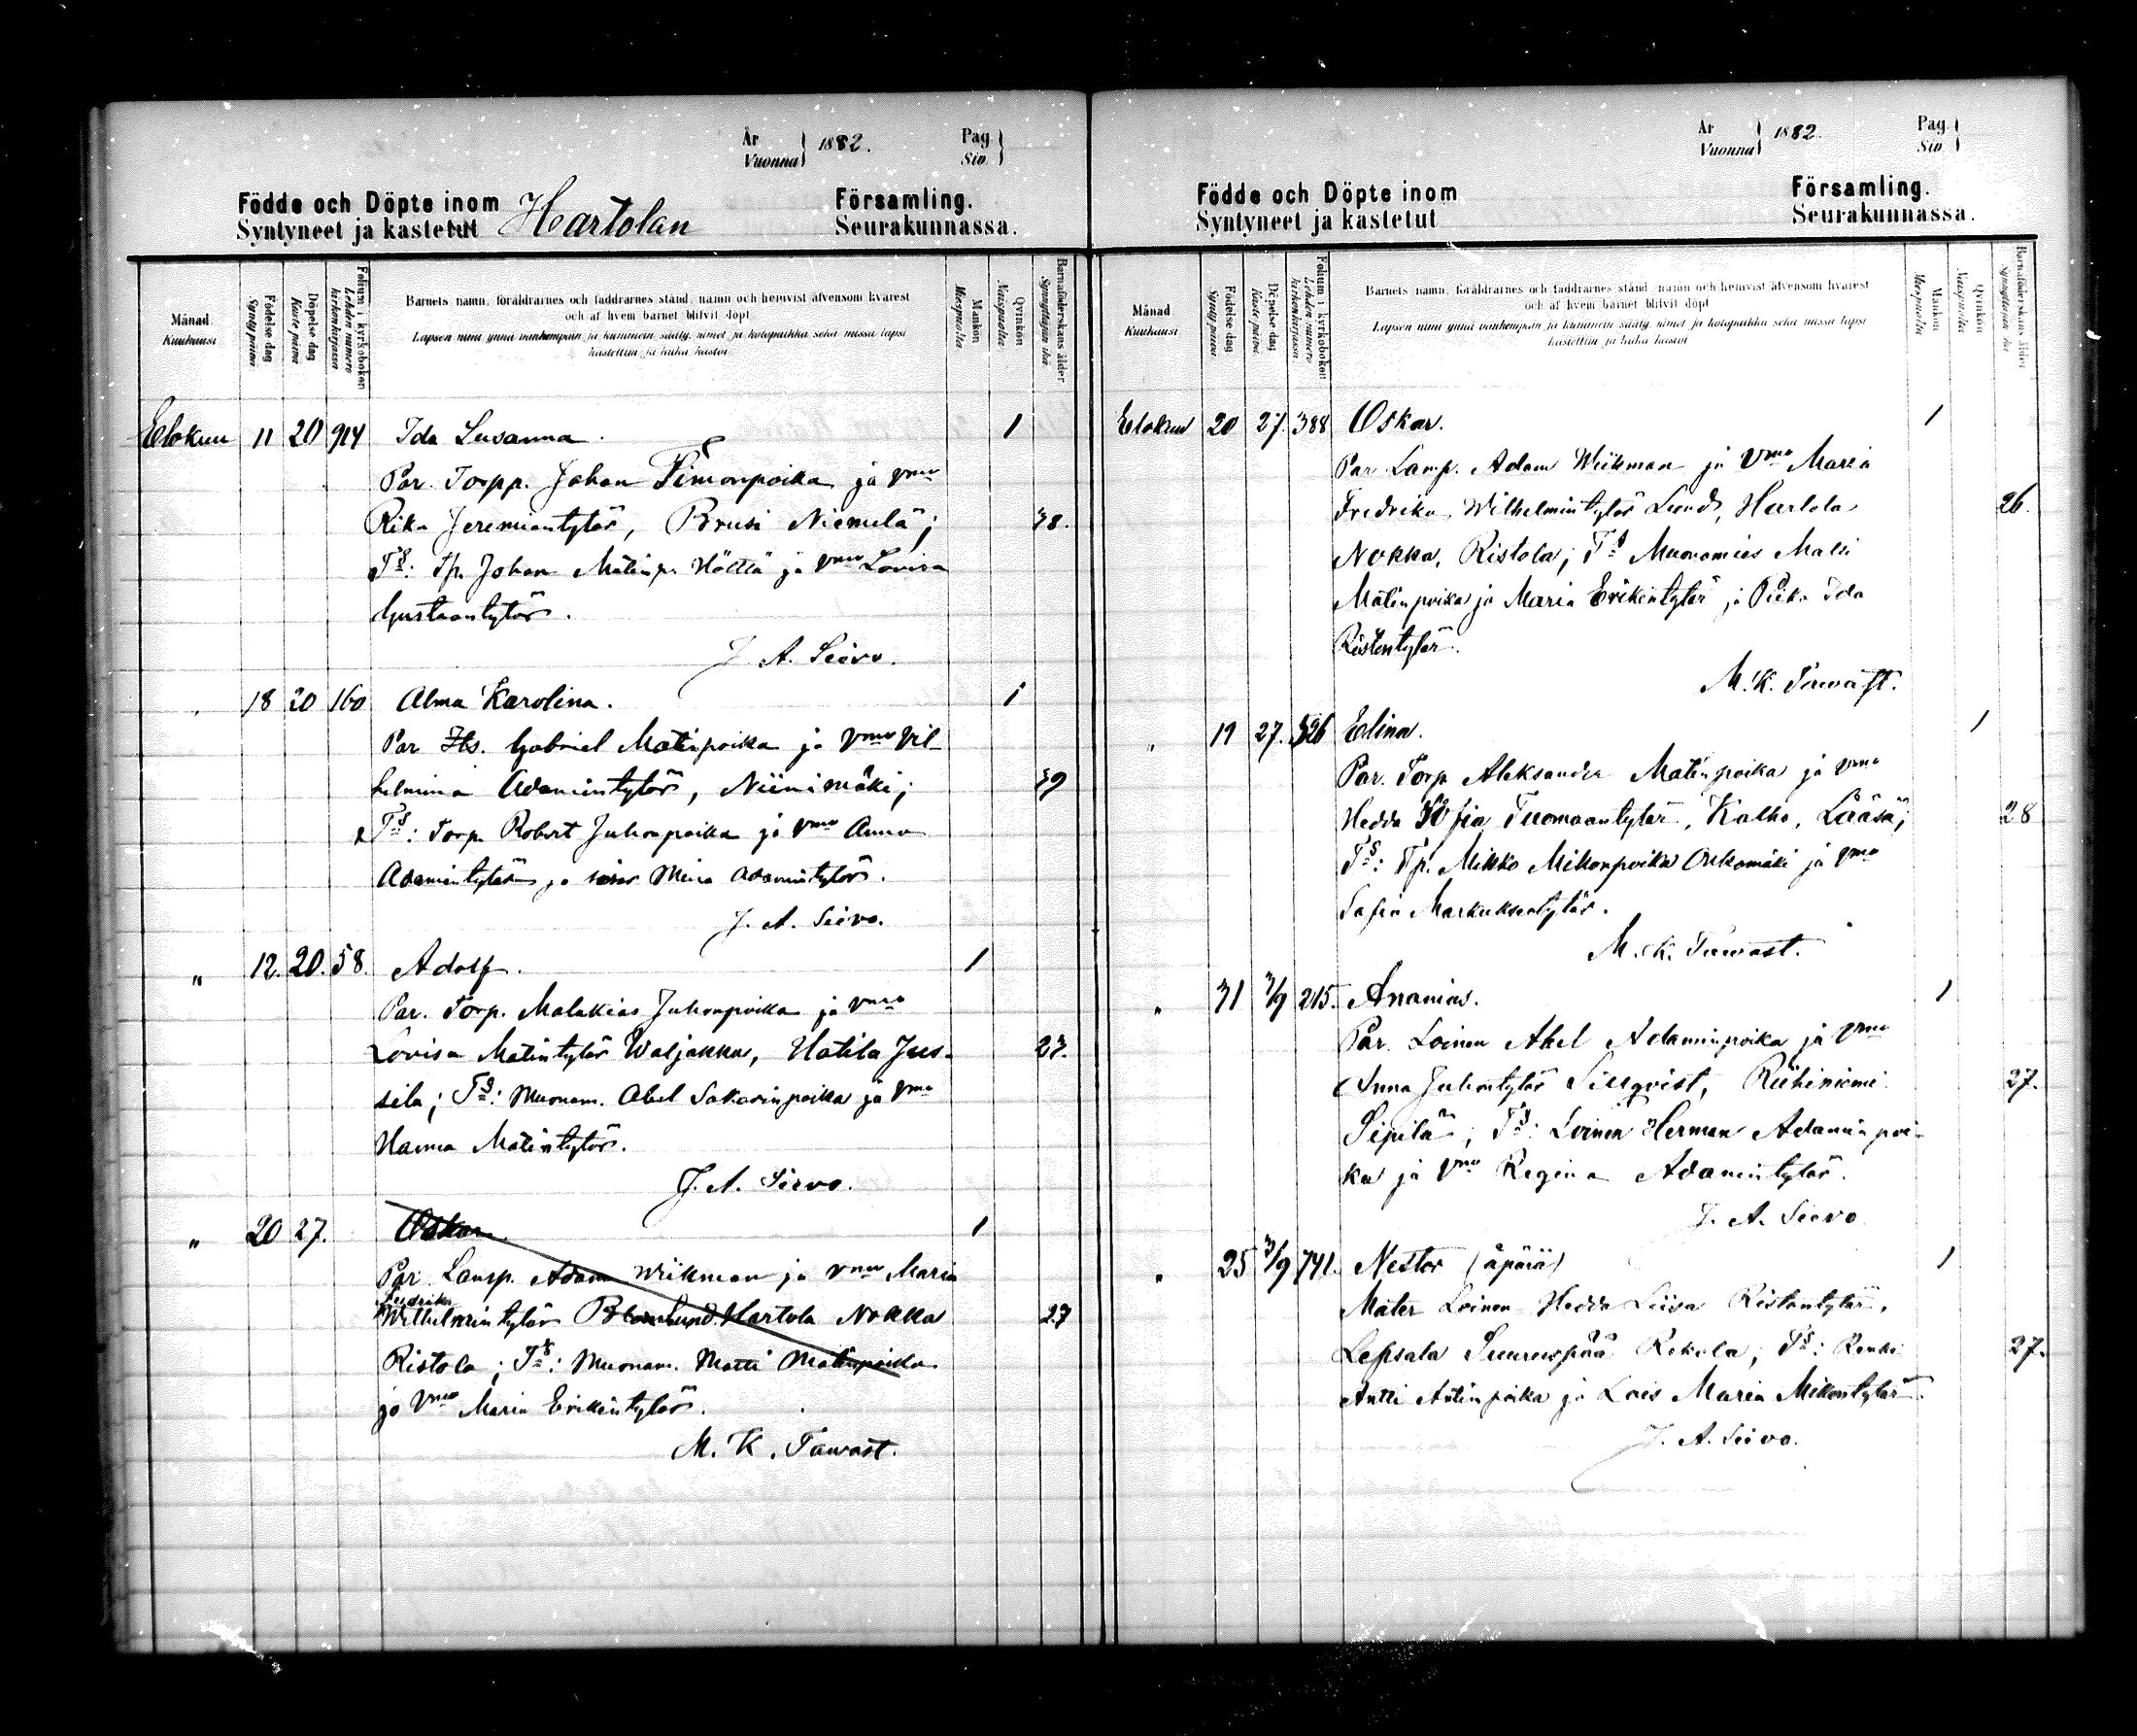 År
Vuonna } 1882.
Pag.
Siv. }
Födde och Döpte inom
Syntyneet ja kastetut
Hartolan
Församling.
Seurakunnassa.
Månad.
Kuukausi
Födelse dag
Synty päivä
Döpelse dag
Kaste päivä
Folium i kyrkoboken
Lehden numero kirkonkirjassa
Barnets namn, föräldrarnes och faddrarnes stånd, namn och hemvist äfvensom hvarest
och af hvem barnet blifvit döpt
Lapsen nimi ynnä vanhempain ja kummein sääty, nimet ja kotopaikka sekä missä lapsi
kastettiin ja kuka kastoi
Mankön
Miespuolia
Qvinkön
Naispuolia
Barnaföderskans ålder
Synnyttäjän ikä
Elokuu 11 20 914 Ida Susanna. 1
Par. Torpp. Johan Simonpoika ja vmo
Rika Jeremiantytär, Brusi Niemelä; 38.
Ts: Tp. Johan Matinp. Hölttä ja Vmo Lovisa
Gustaantytär.
J. A. Siivo.
" 18 20 160 Alma Karolina. 1
Par Its. Gabriel Matinpoika ja Vmo Vil-
helmina Adamintytär, Niinimäki; 39
Ts: Torp. Robert Juhonpoika ja Vmo Anna
Adamintytär ja Mina Adamintytär.
J. A. Siivo.
" 12. 20. 58. Adolf. 1
Par. Torp. Malakias Juhonpoika ja vmo
Lovisa Matintytär Waljakka, Hatila Jus- 27.
sila; Ts: Muonam. Abel Sakarinpoika ja Vmo
Hanna Matintytär.
J. A. Siivo.
" 20 27. Oskar. 1
Par. Lamp. Adam Wiikman ja vmo Maria
Fredrika
Wilhelmintytär Lund. Hartola Nokka 27
Ristola; Ts: Muonam. Matti Matinpoika
ja Vmo Maria Erikintytär.
M. K. Tawast.
År
Vuonna } 1882.
Pag.
Siv. }
Födde och Döpte inom
Syntyneet ja kastetut
Församling.
Seurakunnassa.
Månad
Kuukausi
Födelse dag
Synty päivä
Döpelse dag
Kaste päivä
Folium i kyrkoboken
Lehden numero kirkonkirjassa
Barnets namn, föräldrarnes och faddrarnes stånd, namn och hemvist äfvensom hvarest
och af hvem barnet blifvit döpt
Lapsen nimi ynnä vanhempain ja kummein sääty, nimet ja kotopaikka sekä missä lapsi
kastettiin ja kuka kastoi
Mankön
Miespuolia
Qvinkön
Naispuolia
Barnaföderskans ålder
Synnyttäjän ikä
Elokuu 20 27. 388 Oskar. 1
Par Lamp. Adam Wiikman ja Vmo Maria
Fredrika Wilhelmintytär Lund, Hartola 26.
Nokka, Ristola; Ts Muonamies Matti
Matinpoika ja Maria Erikintytär ja Piika Ida
Ristontytär.
M. K. Tawast.
" 19 27. 526 Elina. 1
Par. Torp Aleksander Matinpoika ja vmo
Hedda Sofia Tuomaantytär, Kalho, Lääsä; 28
Ts: Tp. Mikko Mikonpoika Ruhomäki ja vmo
Safia Markuksentytär.
M. K. Tawast.
" 31 3/9 215. Ananias. 1
Par. Loinen Abel Adaminpoika ja Vmo
Anna Juhontytär Siliqvist, Riihiniemi 27.
Sipilä; Ts: Loinen Herman Adamin poi-
ka ja Vmo Regina Adamintytär.
J. A. Siivo
" 25 3/9 741. Nestor (äpärä) 1
Mater Loinen Hedda Liisa Ristontytär,
Lepsala Suuruspää Rekola; Ts: Renki 27.
Antti Antinpoika ja Lois Maria Mikontytär.
J. A. Siivo.